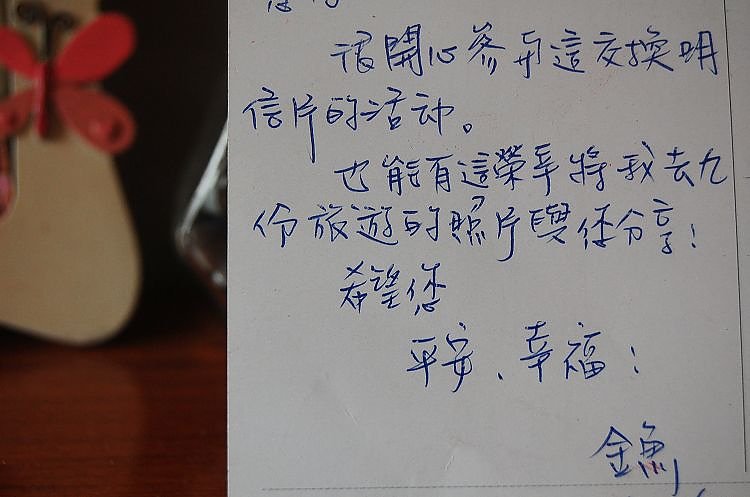 很開心參与這交換明
信片的活动。
也能有這榮幸將我去九
份旅遊的照片與您分享!
希望您
平安、幸福!
金魚